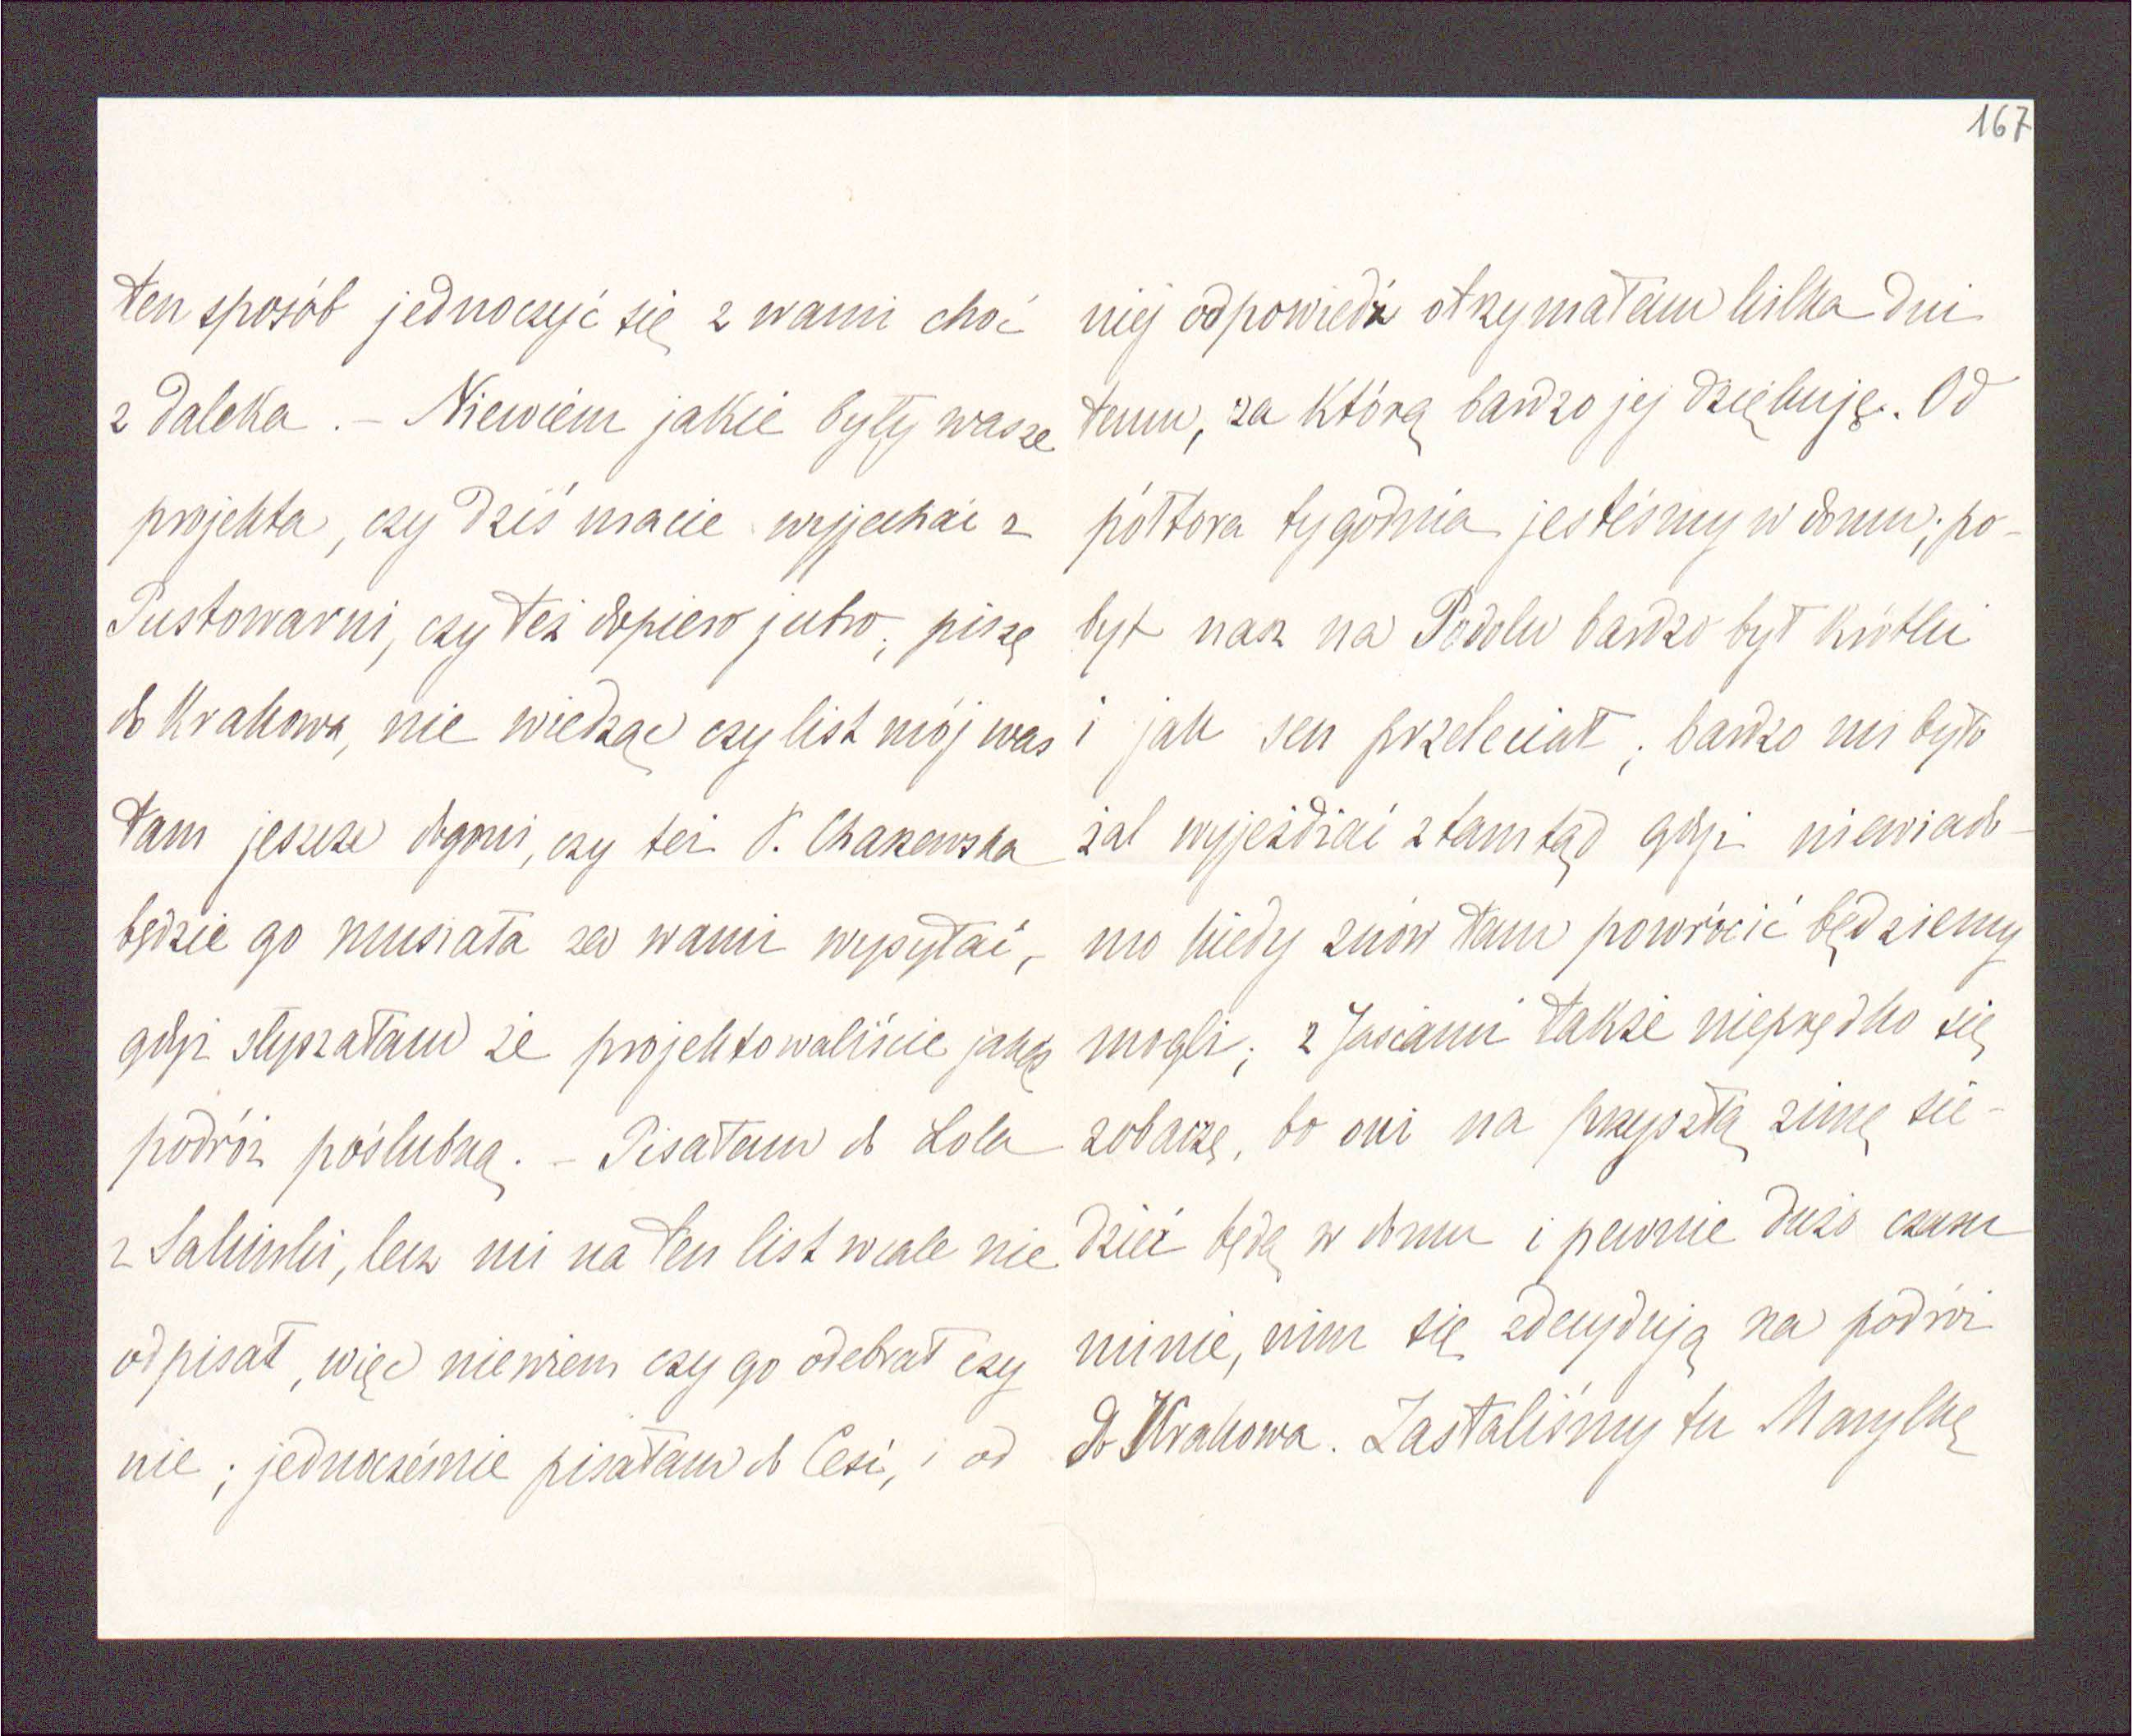 167
ten sposób jednoczyć się z wami choć
z daleka. – Niewiem jakie były wasze
projekta, czy dziś macie wyjechać z
Pustowarni, czy też dopiero jutro; piszę
do Krakowa, nie wiedząc czy list mój was
tam jeszcze dogoni, czy też P.
będzie go musiała za wami wysyłać,
gdyż słyszałam że projektowaliście jakąś
podróż poślubną. – Pisałam do Lola
z, lecz mi na ten list wcale nie
odpisał, więc niewiem czy go odebrał czy
nie; jednocześnie pisałam do Cesi, i od
niej odpowiedź otrzymałam kilka dni
temu, za którą bardzo jej dziękuję. Od
półtora tygodnia jesteśmy w domu; po-
byt nasz na Podolu bardzo był krótki
i jak sen przeleciał; bardzo mi było
żal wyjeżdżać ztamtąd gdyż niewiado-
mo kiedy znów tam powrócić będziemy
mogli; z Jasiami także nieprędko się
zobaczę, bo oni na przyszłą zimę sie-
dzieć będą w domu i pewnie dużo czasu
minie, nim się zdecydują na podróż
do Krakowa. Zastaliśmy tu Marylkę